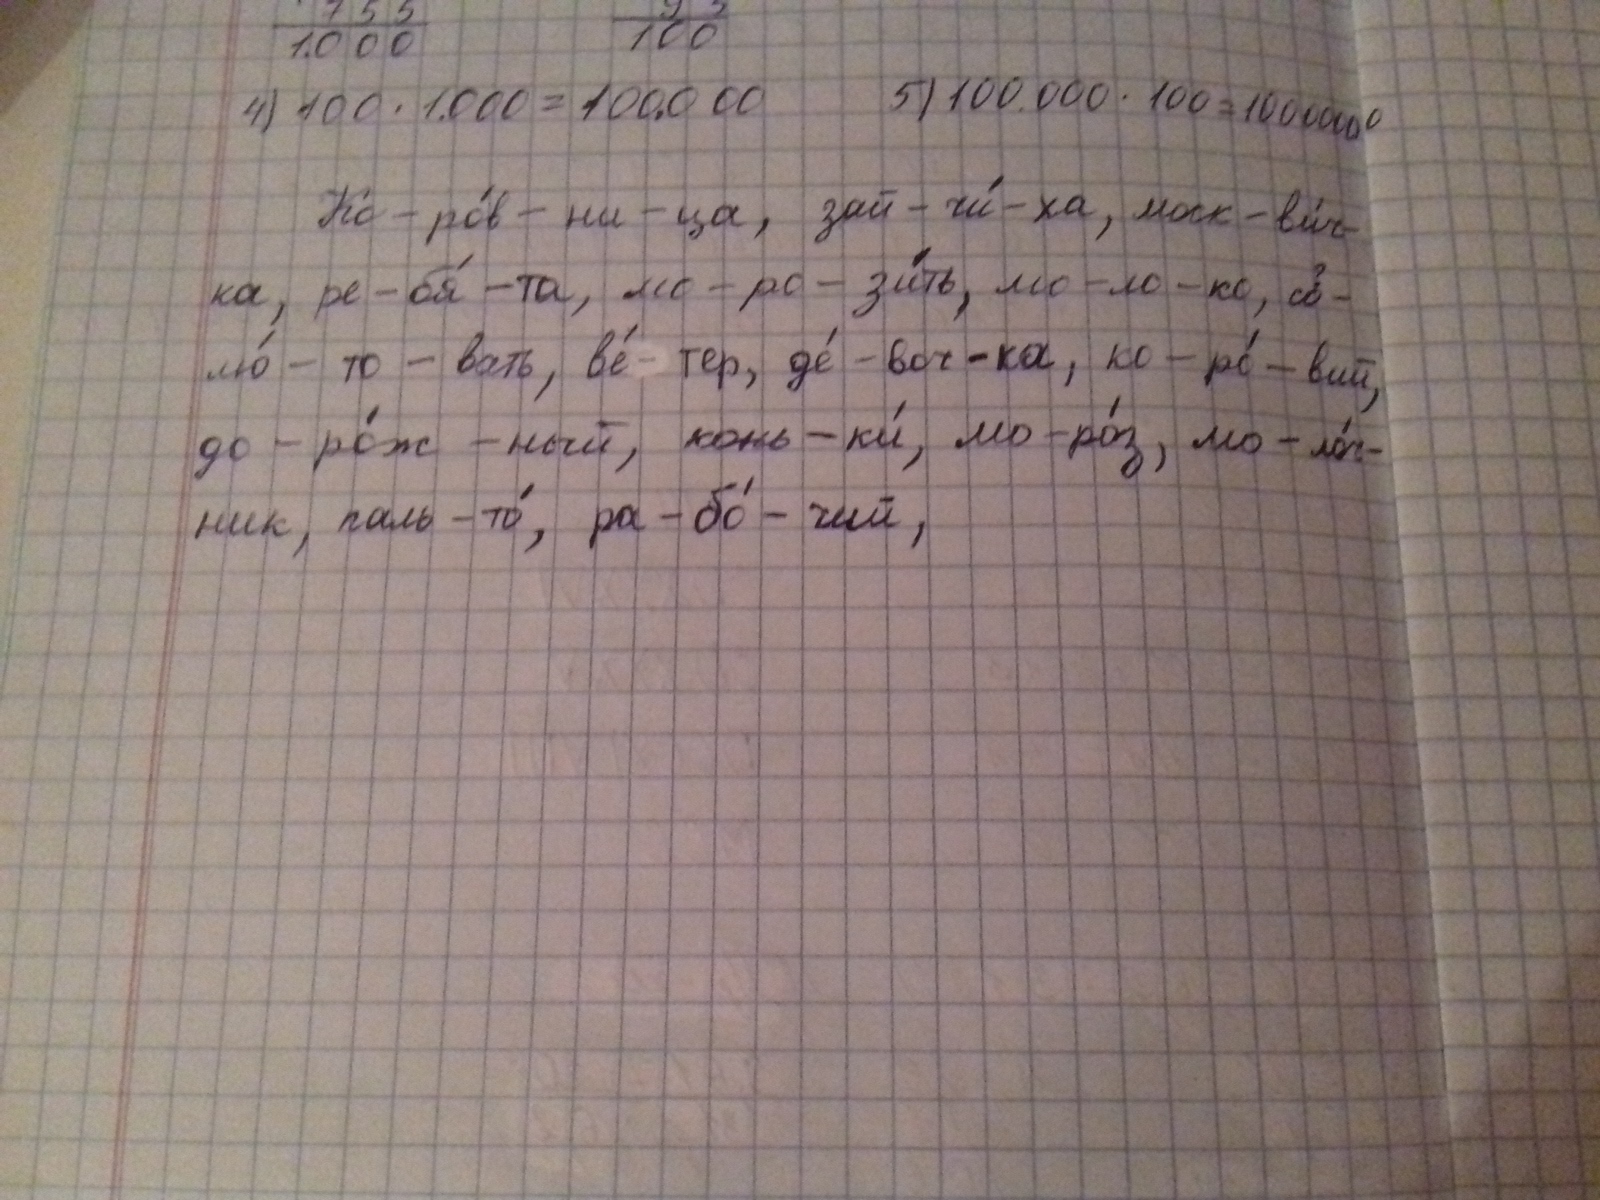 755 95
1.000 100
4) 100 · 1.000 = 100.000 5) 100.000 · 100 = 10000000
Ко - ро́в - ни - ца, зай - чи́ - ха, моск - ви́ч-
ка, ре - бя́ - та, мо - ро - зи́ть, мо - ло - ко,
лю́ - то - вать, ве́ - тер, де́ - воч - ка, ко - ро́ - вий,
до - ро́ж - ный, конь - ки́, мо - ро́з, мо - ло́ч-
ник, паль - то́, ра - бо́ - чий,